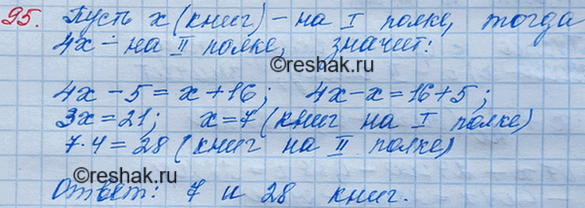 95. Пусть x (книг) - на I полке, тогда
4x - на II полке, значит:
©reshak.ru
4x - 5 = x + 16; 4x - x = 16 + 5;
3x = 21; x = 7 (книг на I полке)
7·4 = 28 (книг на II полке)
Ответ: 7 и 28 книг.